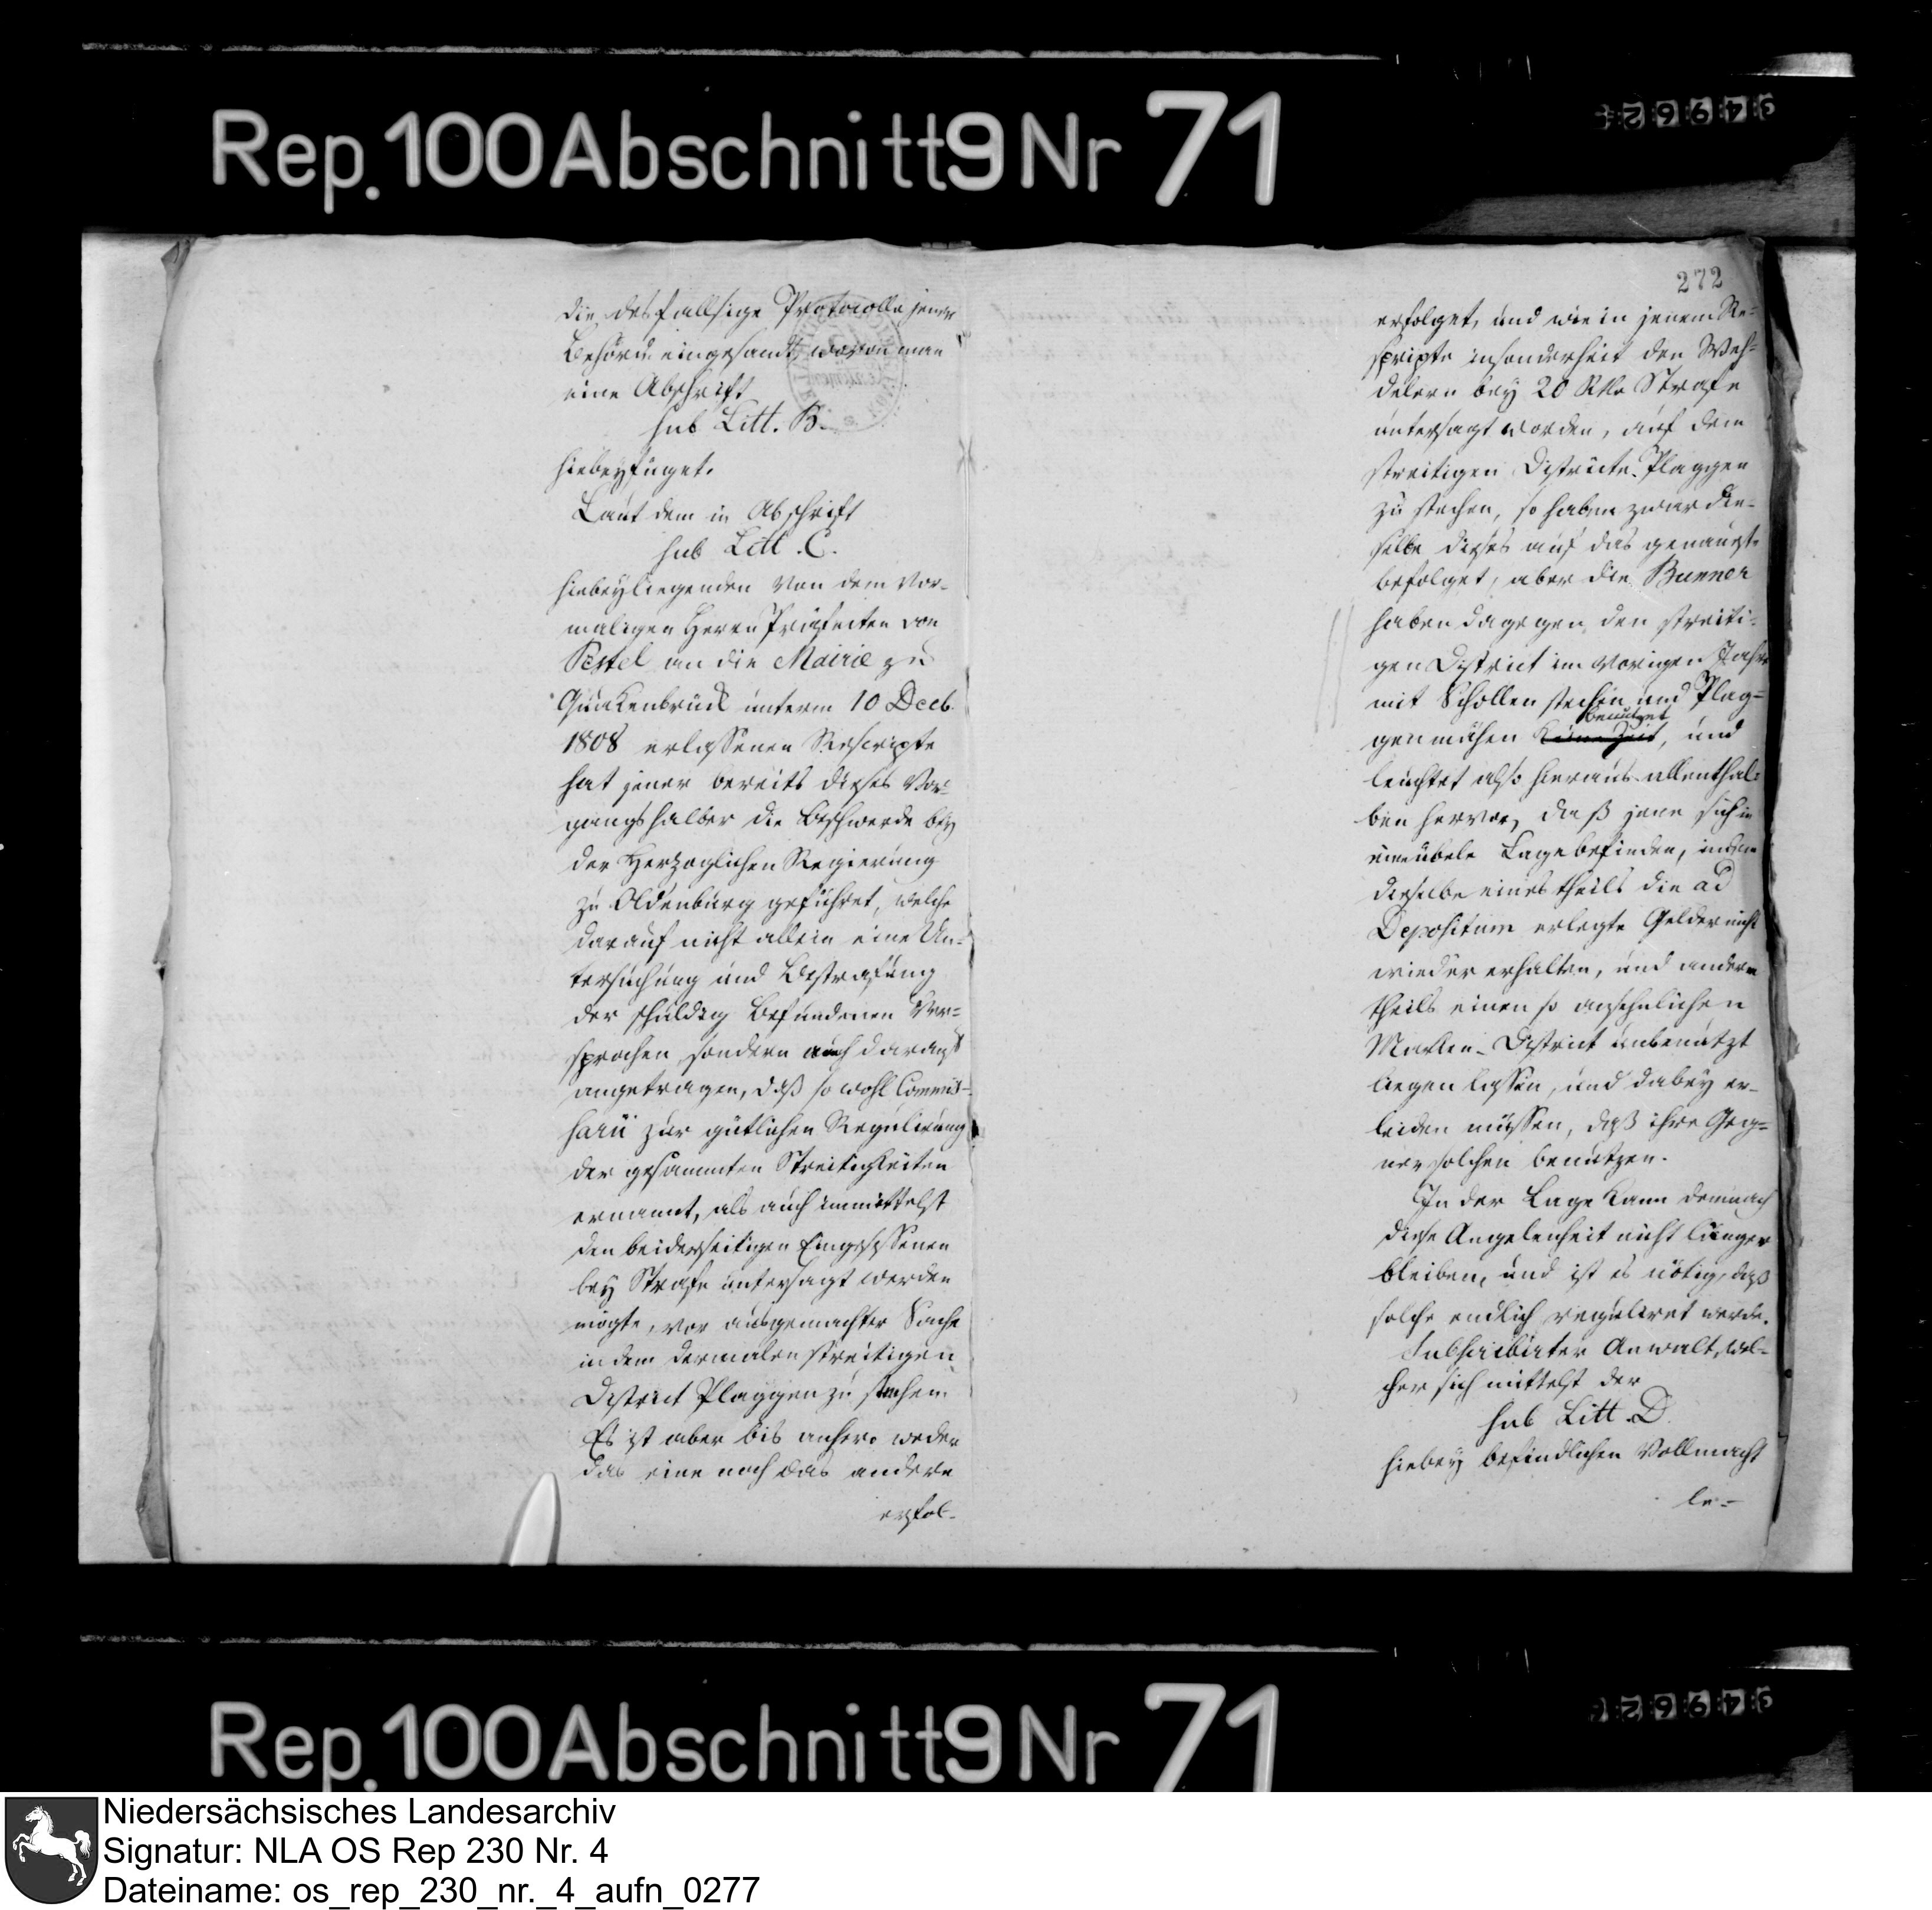 Rep. 100 Abschnitt 9 Nr 71
34962
die desfallsige Protocolle jener
Behörde eingesandt, wovon man
eine Abschrift
sub Litt. B.
hiebeyfüget.
Laut dem in Abschrift
sub Litt. C.
hiebeyliegenden von dem vor-
maligen Herrn Präfecten von
Pestel an die Mairie zu
Quakenbrück unterm 10 Decb.
1808 erlassenen Rescripte
hat jener bereits dieses Vor-
gangs halber die Beschwerde bey
der Herzoglichen Regierung
zu Oldenburg geführet, welche
darauf nicht allein eine Un-
tersuchung und Bestrafung
der schuldig Befundenen ver-
sprochen, sondern auch darauf
angetragen, daß so wohl Commis-
sarii zur gütlichen Regulirung
der gesammten Streitigkeiten
ernannt, als auch inmittelst
den beiderseitigen Eingesessenen
bey Strafe untersagt werden
mögte, vor ausgemachter Sache
in dem dermalen streitigen
District Plaggen zu stechen.
Es ist aber bis anhero weder
das eine noch das andere
erfol-
272
erfolget, und wie in jenem Re-
scripte insonderheit den Weh-
delern bey 20 Rtlr Strafe
untersagt worden, auf dem
streitigen Districte Plaggen
zu stechen, so haben zwar die-
selbe dieses auf das genauste
befolget, aber die Bunner
haben dagegen den streiti-
gen District im vorigen Jahre
mit Schollen stechen und Plag-
benutzet
gen mähen, und
leuchtet also hieraus allenthal-
ben hervor, daß jene sich in
eine übele Lage befinden, indem
dieselbe eines theils die ad
Depositum erlegte Gelder nicht
wieder erhalten, und andern
theils einen so ansehnlichen
Marken-District unbenutzt
liegen lassen, und dabey er-
leiden müssen, daß ihre Geg-
ner solchen benutzen.
In der Lage kann demnach
diese Angelenheit nicht länger
bleiben, und ist es nötig, daß
solche endlich reguliret werde.
Subscribirter Anwalt, wel-
cher sich mittelst der
sub Litt. D.
hiebey befindlichen Vollmacht
le-
Rep. 100 Abschnitt 9 Nr 71
34962
Niedersächsisches Landesarchiv
Signatur: NLA OS Rep 230 Nr. 4
Dateiname: os_rep_230_nr._4_aufn_0277